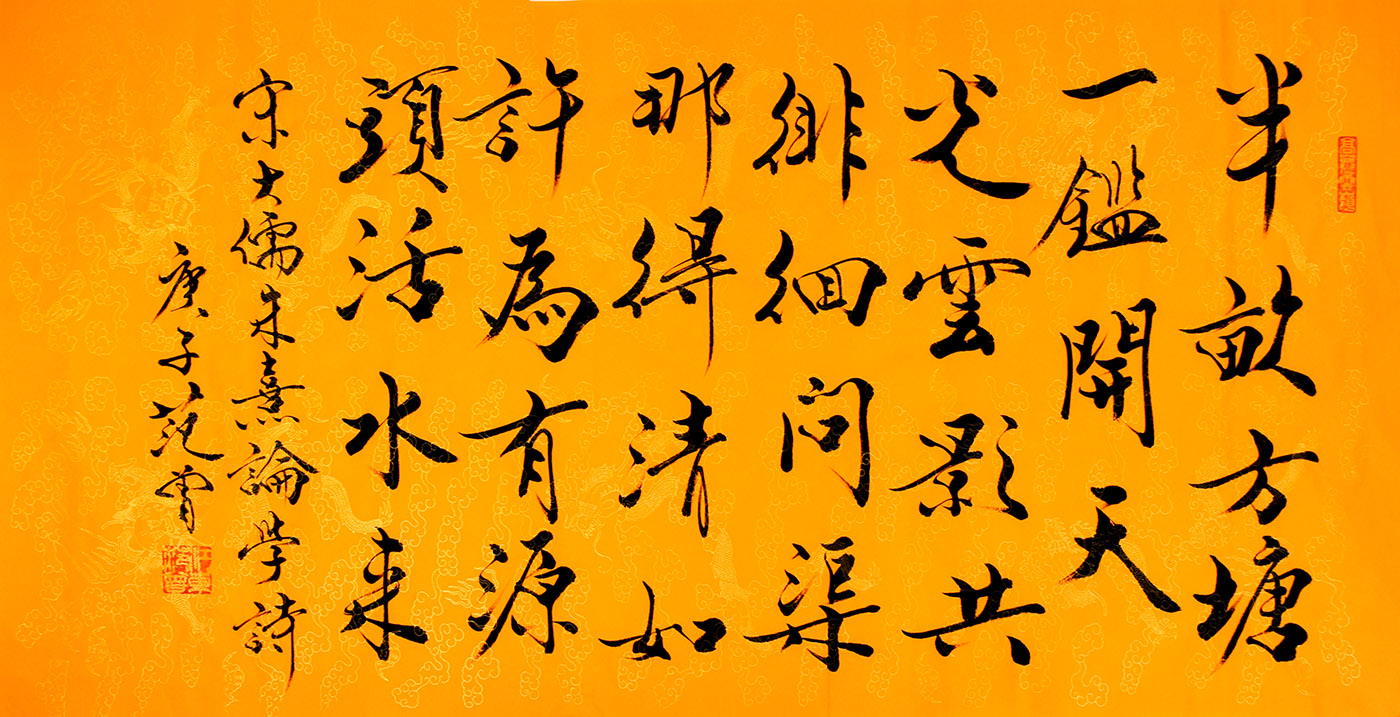 半畝方塘
一鑑開天
光雲影共
徘徊問渠
那得清如
許為有源
頭活水来
宋大儒朱熹論學詩
庚子范曾